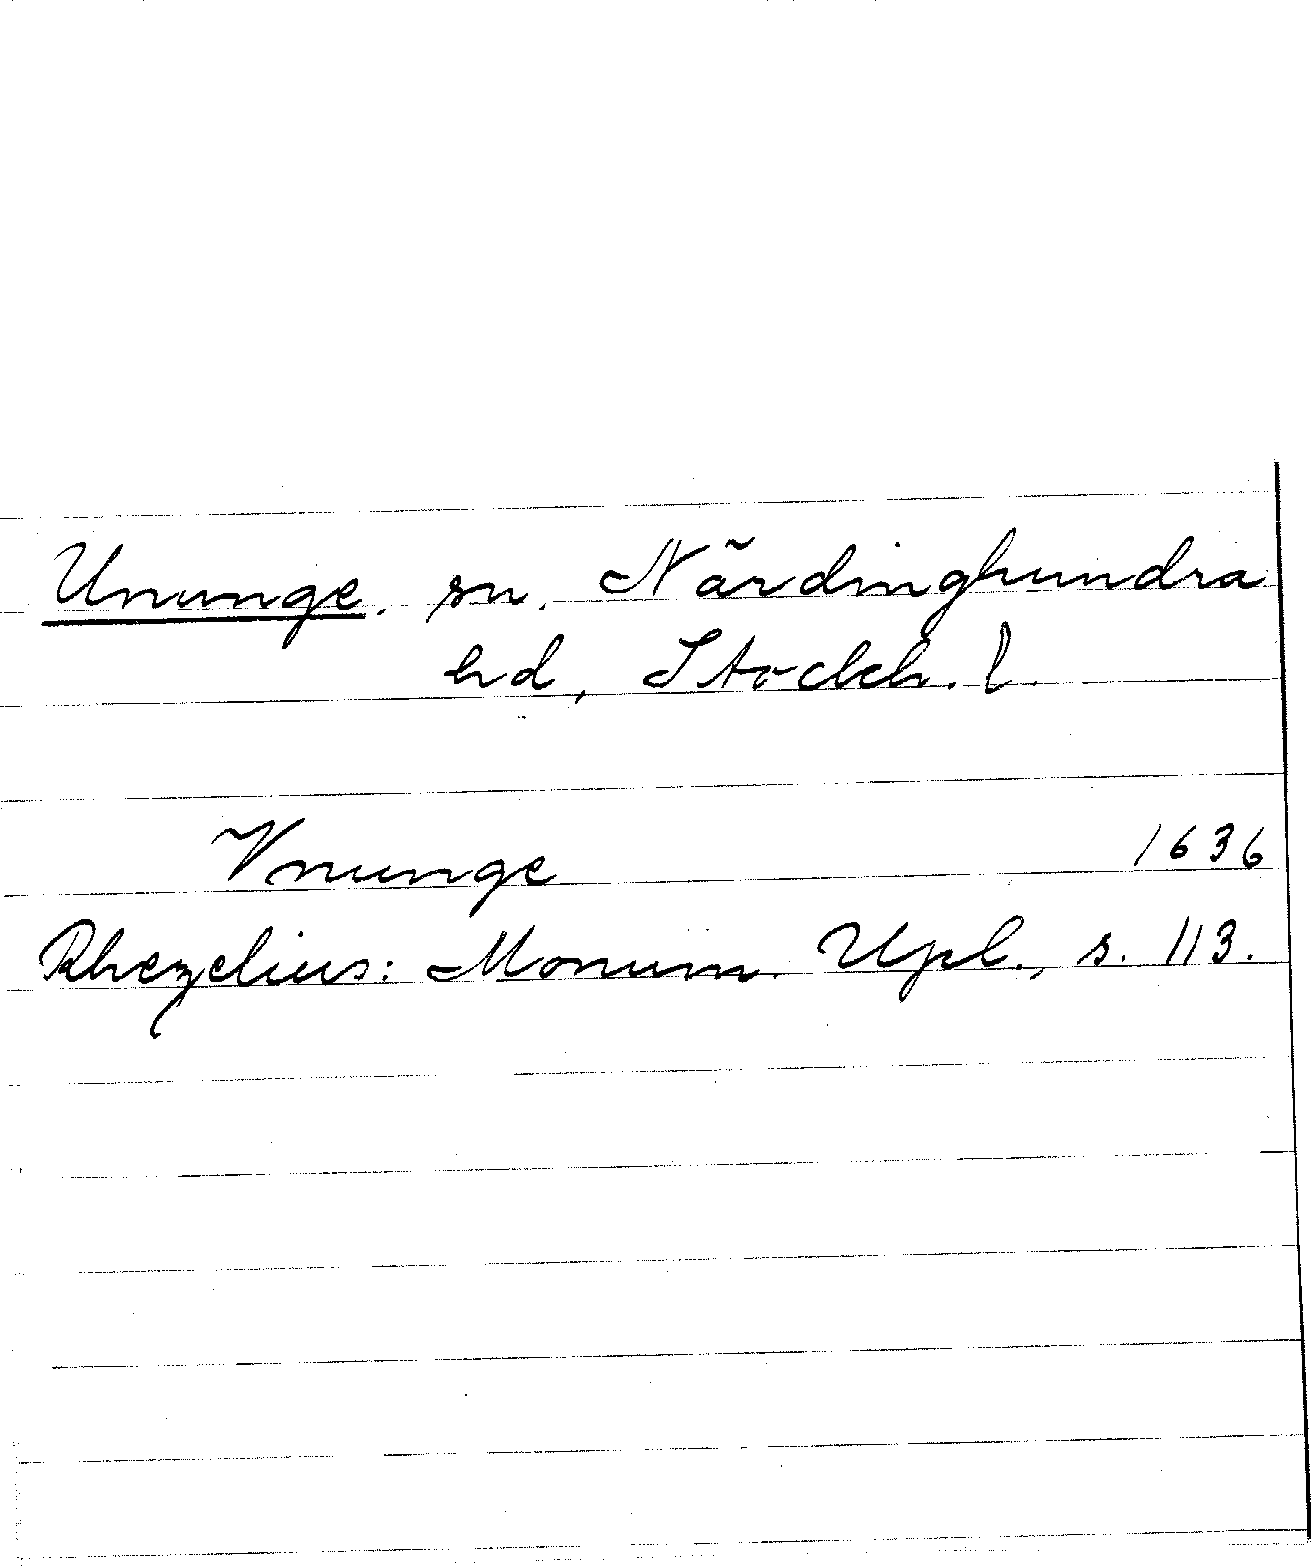 Ununge. sn. Närdinghundra
hd, Stockh. l.
Vnunge 1636
Rhezelius: Monum. Upl., s. 113.